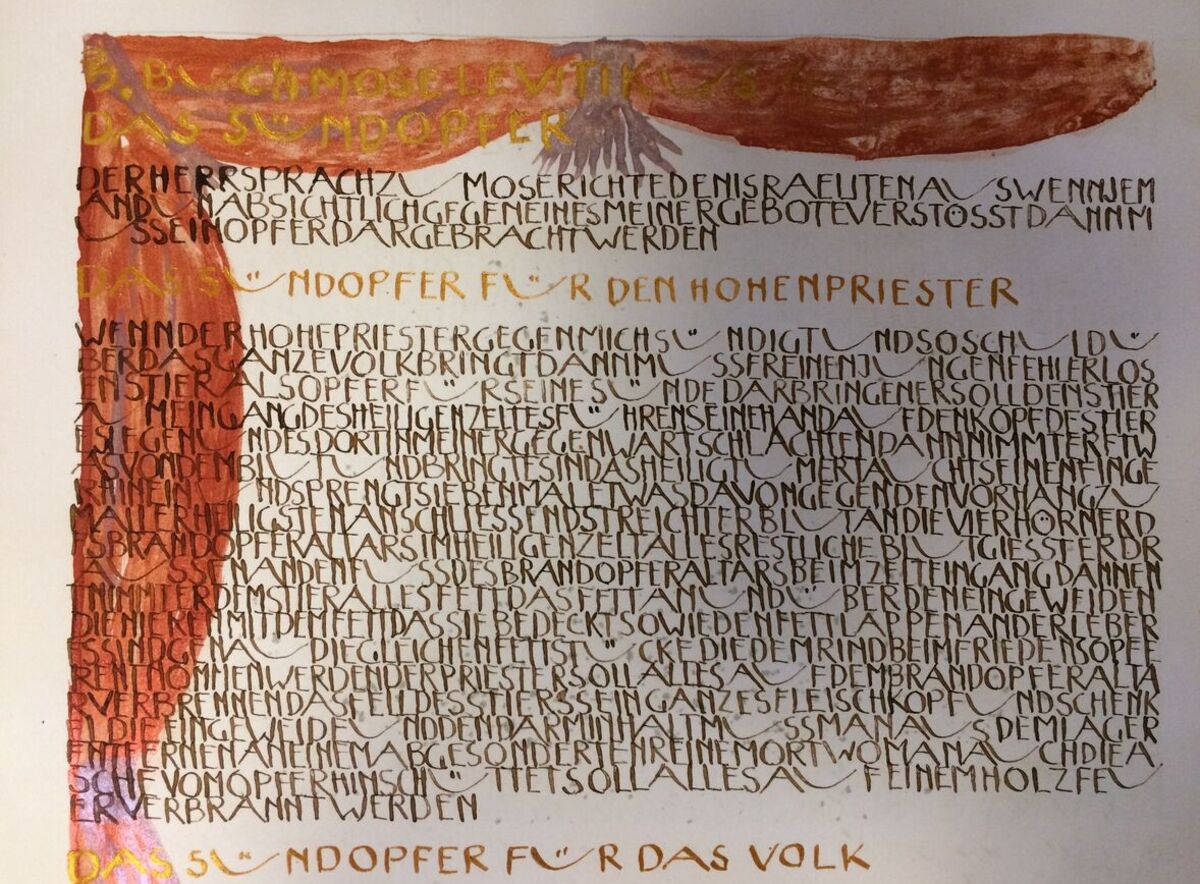 3. BUCH MOSE LEVITIKUS
DAS SÜNDOPFER
DERHERRSPRACHZU MOSERICHTEDENISRAELITENAUSWENNJEM
ANDUNABSICHTLICHGEGENEINESMEINERGEBOTEVERSTÖSSTDANNM
USSEINOPFERDARGEBRACHTWERDEN
DAS SÜNDOPFER FÜR DEN HOHENPRIESTER
WENNDERHOHEPRIESTERGEGENMICHSÜNDIGTUNDSOSCHULDÜ
BERDASGANZEVOLKBRINGTDANNMUSSEREINENJUNGENFEHLERLOS
ENSTIERALSOPFERFÜRSEINESÜNDEDARBRINGENERSOLLDENSTIER
ZUMEINGANGDESHEILIGENZELTESFÜHRENSEINEHANDAUFDENKOPFDESSTIER
ESLEGENUNDESDORTINMEINERGEGENWARTSCHLACHTENDANNNIMMTERETW
ASVONDEMBLUTUNDBRINGTESINDASHEILIGTUMERTAUCHTSEINENFINGE
RHINEINUNDSPRENGTSIEBENMALETWASDAVONGEGENDENVORHANGZU
MALLERHEILIGSTENANSCHLIESSENDSTREICHTERBLUTANDIEVIERHÖRNERD
ESBRANDOPFERALTARSIMHEILIGENZELTALLESRESTLICHEBLUTGIESSTERDR
AUSSENANDENFUSSDESBRANDOPFERALTARSBEIMZELTEINGANGDANNEN
TNIMMTERDEMSTIERALLESFETTDASFETTANUNDÜBERDENEINGEWEIDEN
DIENIERENMITDEMFETTDASSIEBEDECKTSOWIEDENFETTLAPPENANDERLEBER
ESSINDGENAUDIEGLEICHENFETTSTÜCKEDIEDEMRINDBEIMFRIEDENSOPFE
RENTNOMMENWERDENDERPRIESTERSOLLALLESAUFDEMBRANDOPFERALTA
RVERBRENNENDASFELLDESSTIERSSEINGANZESFLEISCHKOPFUNDSCHENK
ELDIEEINGEWEIDEUNDDENDARMINHALTMUSSMANAUSDEMLAGER
ENTFERNENANEINEMABGESONDERTENREINEMORTWOMANAUCHDIEA
SCHEVOMOPFERHINSCHÜTTETSOLLALLESAUFEINEMHOLZFEU
ERVERBRANNTWERDEN
DAS SÜNDOPFER FÜR DAS VOLK